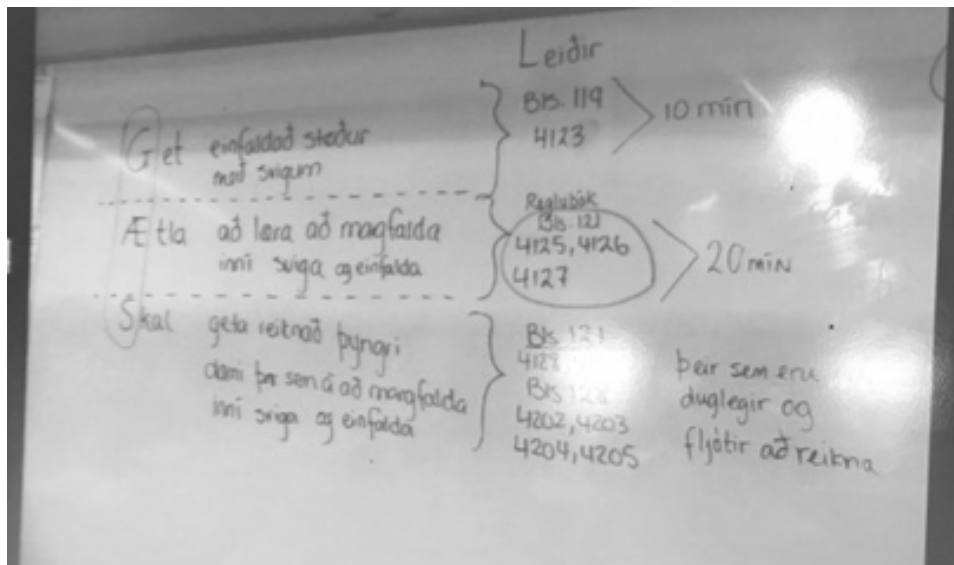 Leiðir
Get einfaldað stæður
með svigum
Bls. 119
4123
10 mín
Ætla að læra að magfalda
inní sviga og einfalda
Reglubók
Bls. 121
4125, 4126
4127
20 mín
Skal geta reiknað þyngri
dæmi þar sem á að margfalda
inní sviga og einfalda
Bls. 121
4128
Bls. 128
4202, 4203
4204, 4205
þeir sem eru
duglegir og
fljótir að reikna